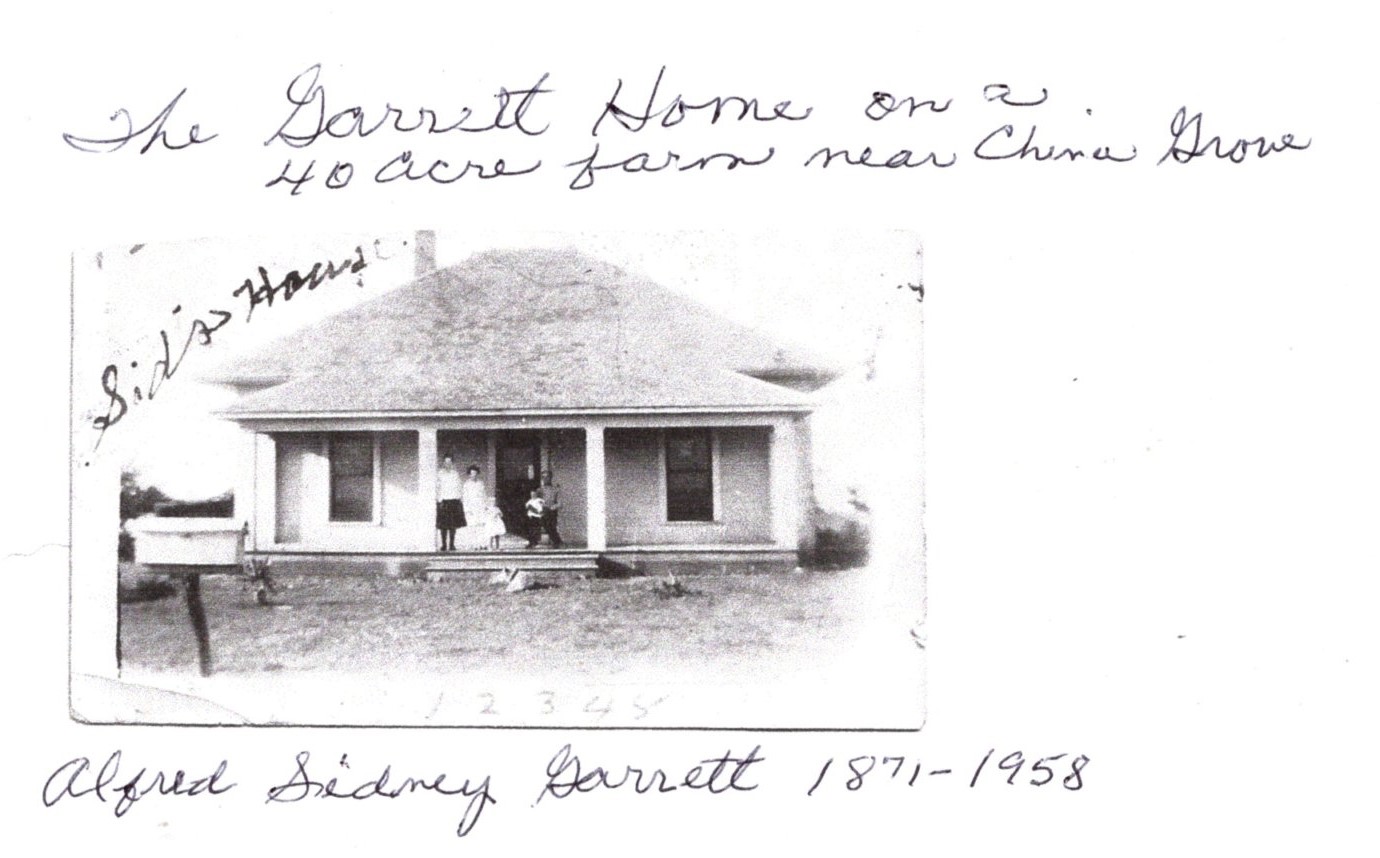 The Garrett Home on a
40 acre farm near China Grove
Sid's House
1 2 3 4 5
Alfred Sidney Garrett 1871-1958